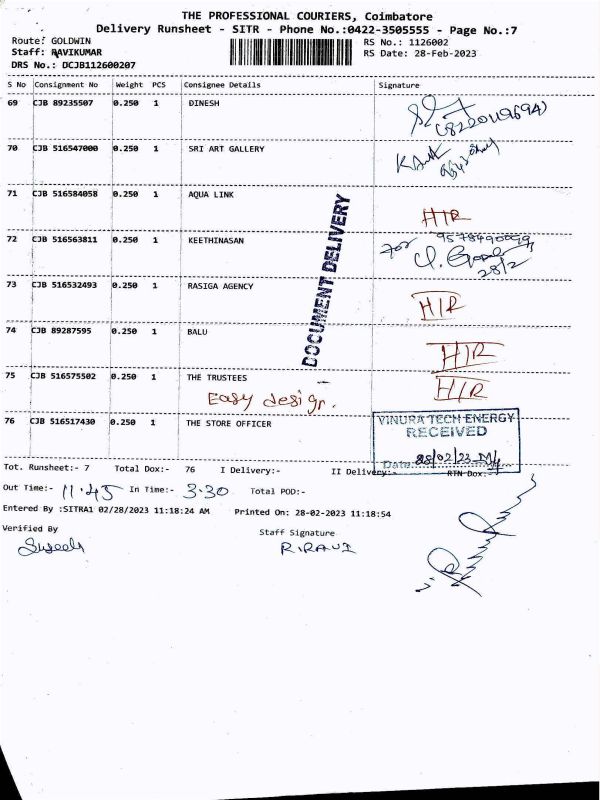 THE PROFESSIONAL COURIERS, Coimbatore
Delivery Runsheet - SITR - Phone No.:0422-3505555 - Page No.:7
Route: GOLDWIN
RS No.: 1126002
Staff: RAVIKUMAR
RS Date: 28-Feb-2023
DRS No.: DCJB112600207
S No Consignment No Weight PCS Consignee Details Signature
69 CJB 89235507 0.250 1 DINESH
70 CJB 516547000 0.250 1 SRI ART GALLERY
71 CJB 516584058 0.250 1 AQUA LINK
HIR
DOCUMENT DELIVERY
72 CJB 516563811 0.250 1 KEETHINASAN
for 9578490099
28/2
73 CJB 516532493 0.250 1 RASIGA AGENCY
HIR
74 CJB 89287595 0.250 1 BALU
HIR
75 CJB 516575502 0.250 1 THE TRUSTEES
HIR
Easy design.
76 CJB 516517430 0.250 1 THE STORE OFFICER
VINURA TECH ENERGY
RECEIVED
Date: 28/02/23
Tot. Runsheet:- 7 Total Dox:- 76 I Delivery:- II Delivery:- RTN Dox:-
Out Time:- 11.45 In Time:- 3:30 Total POD:-
Entered By :SITRA1 02/28/2023 11:18:24 AM Printed On: 28-02-2023 11:18:54
Verified By
Staff Signature
Suseela
R.RAVI